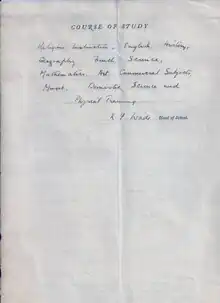 COURSE OF STUDY
Religious Instruction, English, History,
Geography French Science,
Mathematics, Art Commercial Subjects
Music, Domestic Science and
Physical Training
Head of School